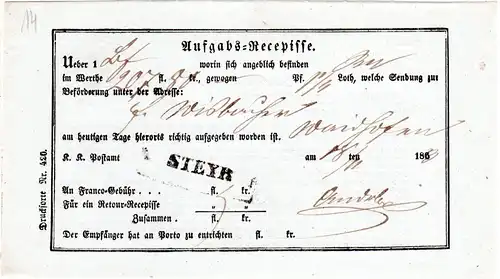 14
Aufgabs-Recepisse.
Ueber 1 Bf worin sich angeblich befinden
im Werthe fl. kr., gewogen Pf. Loth, welche Sendung zur
Beförderung unter der Adresse:
Waidhofen
am heutigen Tage hierorts richtig aufgegeben worden ist.
K. K. Postamt STEYR am ten 186
An Franco-Gebühr . . . . fl. kr.
Für ein Retour-Recepisse " "
Zusammen . fl. kr.
Der Empfänger hat an Porto zu entrichten fl. kr.
Drucksorte Nr. 420.